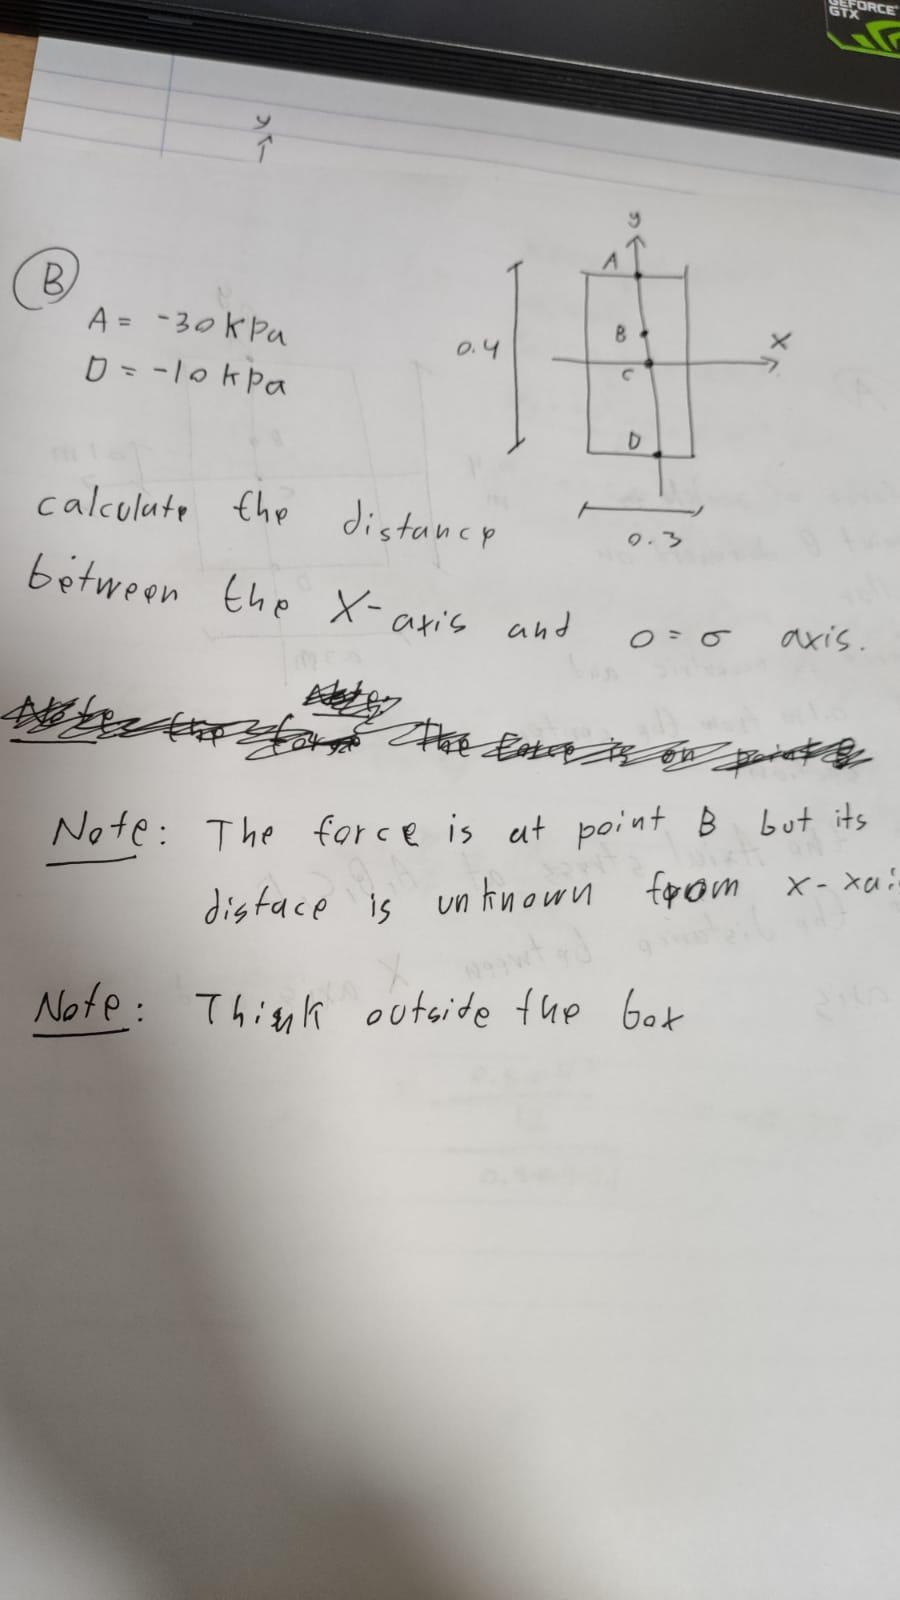 GEFORCE
GTX
y
B
A = -30 kpa
D = -10 kpa
y
A
B
C
D
x
0.4
0.3
calculate the distance
between the X-axis and 0 = σ axis.
Note: The force is at point B but its
distace is unknown from x-xai
Note: Think outside the box